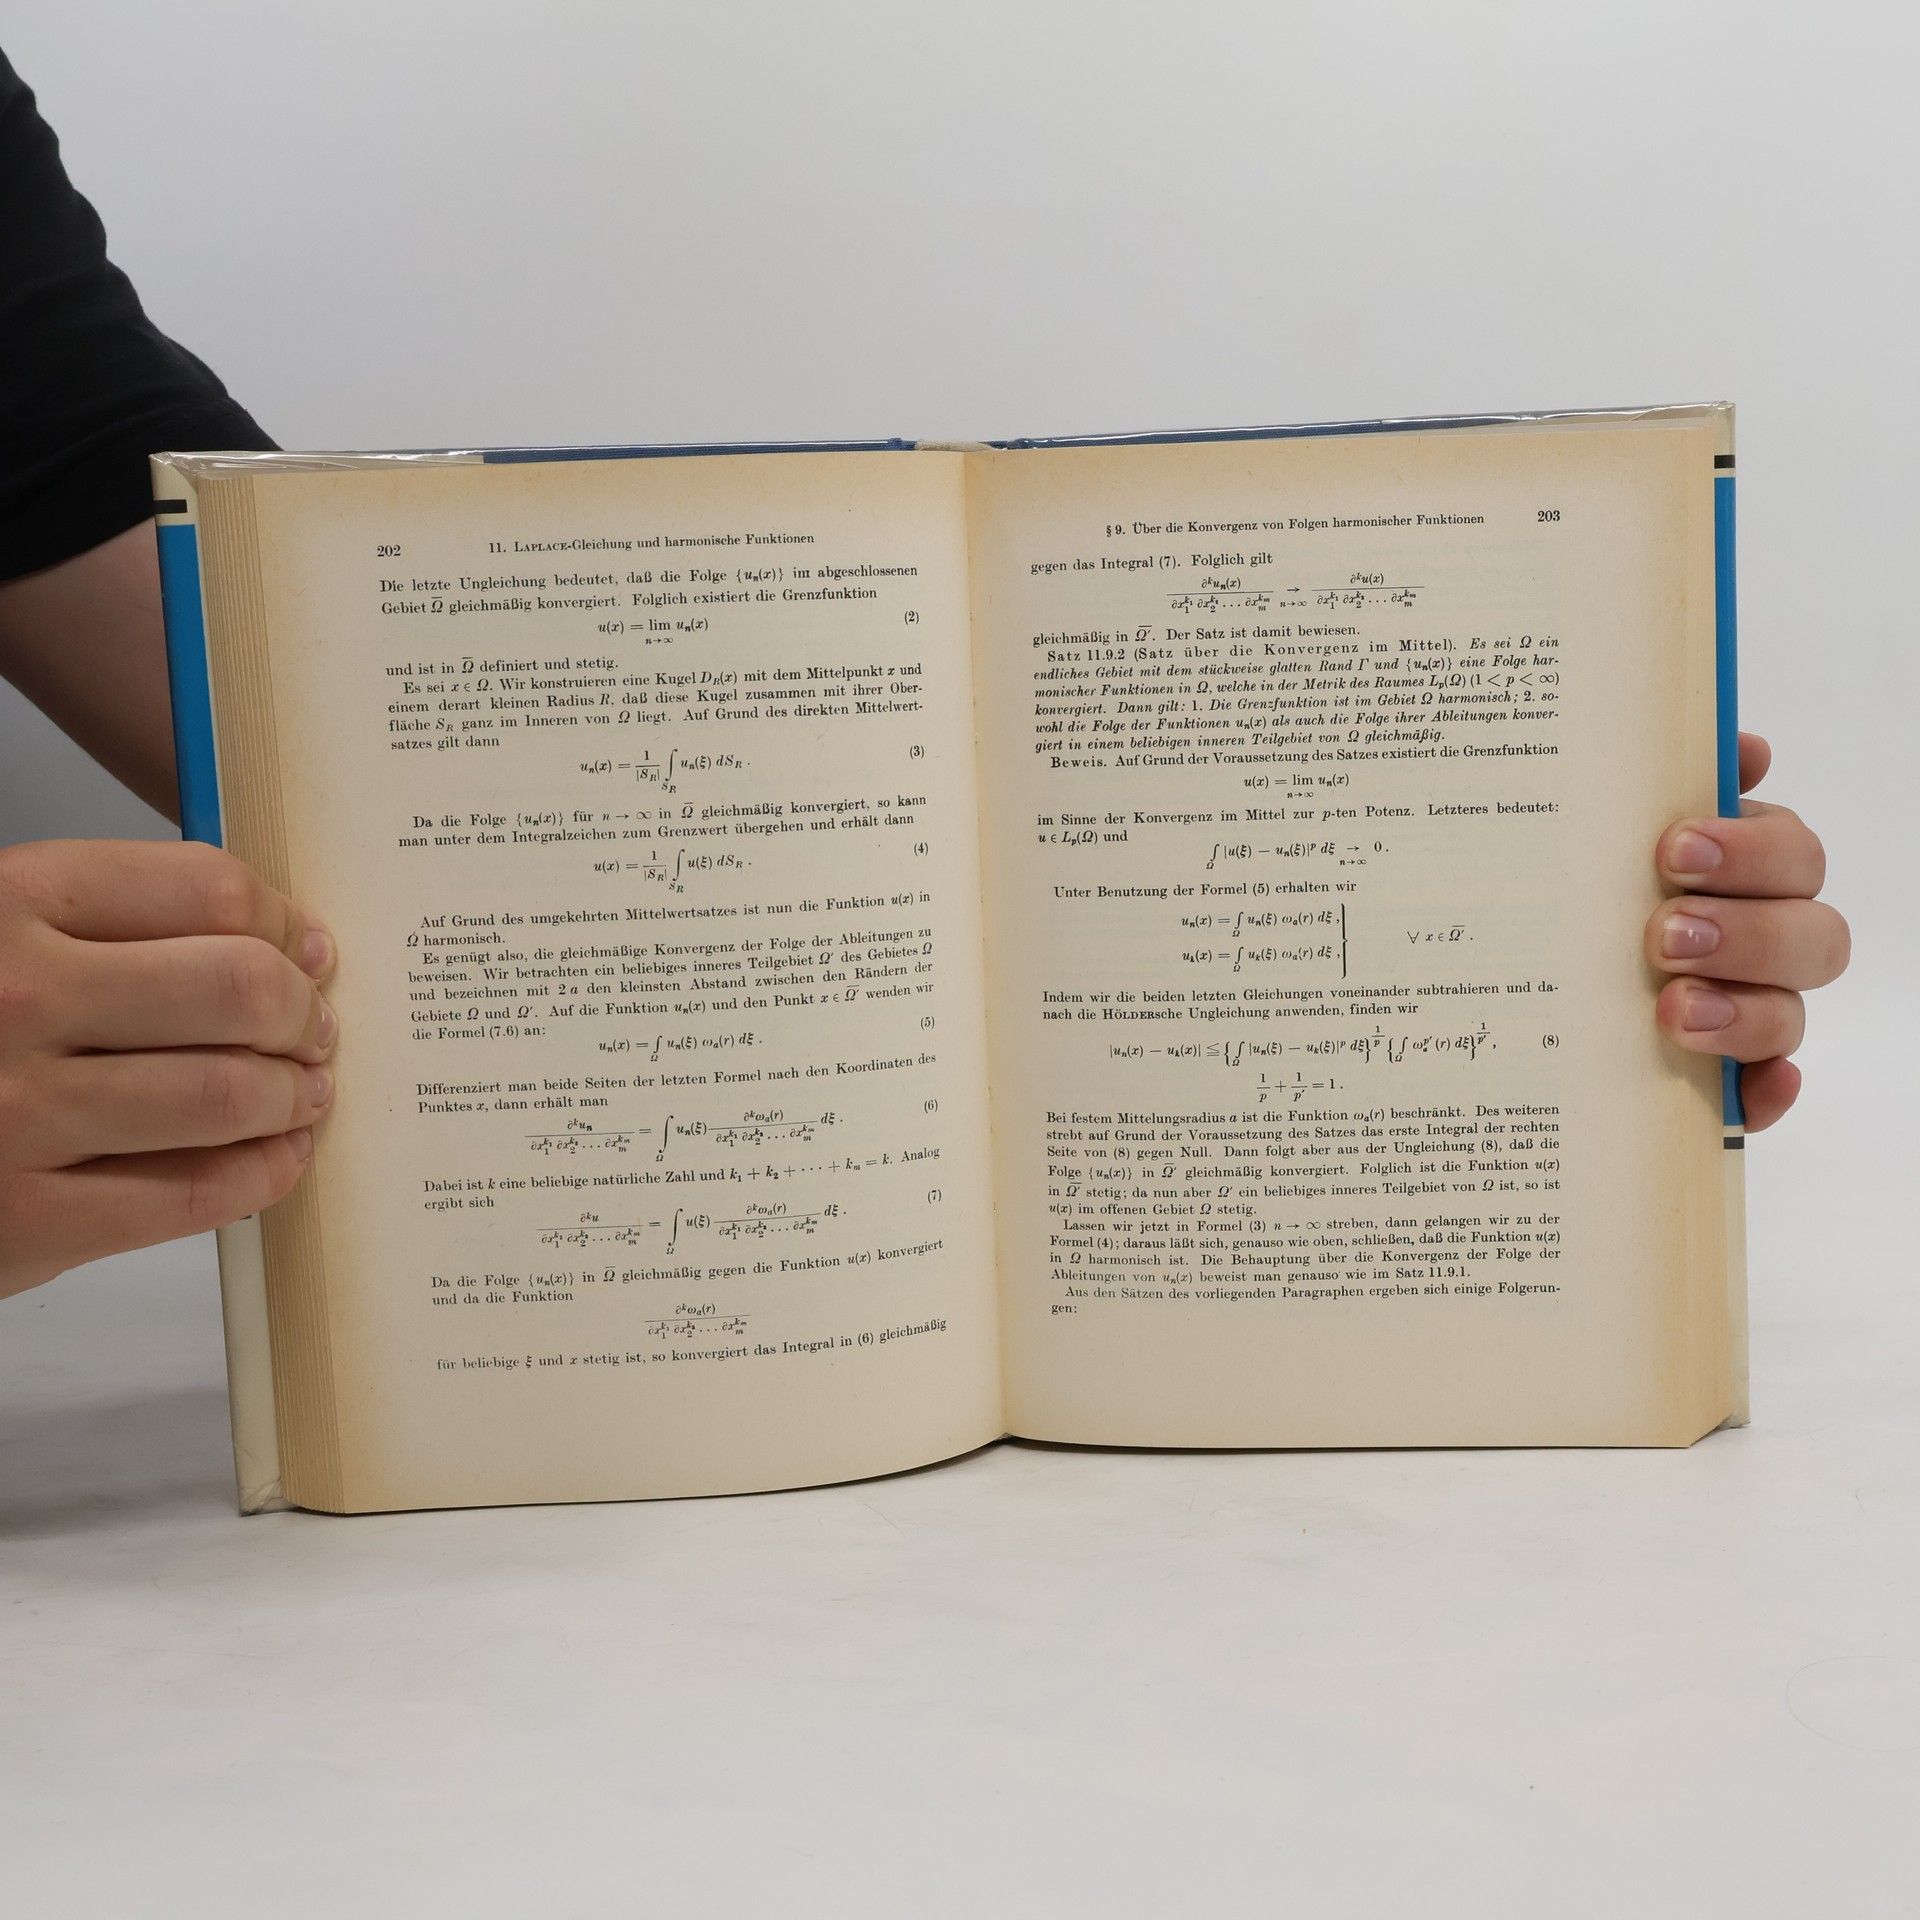 202 11. LAPLACE-Gleichung und harmonische Funktionen
Die letzte Ungleichung bedeutet, daß die Folge {uₙ(x)} im abgeschlossenen
Gebiet Ω̅ gleichmäßig konvergiert. Folglich existiert die Grenzfunktion
u(x) = lim uₙ(x) (2)
n→∞
und ist in Ω̅ definiert und stetig.
Es sei x ∈ Ω. Wir konstruieren eine Kugel D_R(x) mit dem Mittelpunkt x und
einem derart kleinen Radius R, daß diese Kugel zusammen mit ihrer Ober-
fläche S_R ganz im Inneren von Ω liegt. Auf Grund des direkten Mittelwert-
satzes gilt dann
uₙ(x) = 1/|S_R| ∫_{S_R} uₙ(ξ) dS_R . (3)
Da die Folge {uₙ(x)} für n → ∞ in Ω̅ gleichmäßig konvergiert, so kann
man unter dem Integralzeichen zum Grenzwert übergehen und erhält dann
u(x) = 1/|S_R| ∫_{S_R} u(ξ) dS_R . (4)
Auf Grund des umgekehrten Mittelwertsatzes ist nun die Funktion u(x) in
Ω harmonisch.
Es genügt also, die gleichmäßige Konvergenz der Folge der Ableitungen zu
beweisen. Wir betrachten ein beliebiges inneres Teilgebiet Ω′ des Gebietes Ω
und bezeichnen mit 2 a den kleinsten Abstand zwischen den Rändern der
Gebiete Ω und Ω′. Auf die Funktion uₙ(x) und den Punkt x ∈ Ω̅′ wenden wir
die Formel (7.6) an:
uₙ(x) = ∫_Ω uₙ(ξ) ωₐ(r) dξ . (5)
Differenziert man beide Seiten der letzten Formel nach den Koordinaten des
Punktes x, dann erhält man
∂ᵏuₙ / ∂x₁^{k₁} ∂x₂^{k₂} . . . ∂xₘ^{kₘ} = ∫_Ω uₙ(ξ) ∂ᵏωₐ(r) / ∂x₁^{k₁} ∂x₂^{k₂} . . . ∂xₘ^{kₘ} dξ . (6)
Dabei ist k eine beliebige natürliche Zahl und k₁ + k₂ + · · · + kₘ = k. Analog
ergibt sich
∂ᵏu / ∂x₁^{k₁} ∂x₂^{k₂} . . . ∂xₘ^{kₘ} = ∫_Ω u(ξ) ∂ᵏωₐ(r) / ∂x₁^{k₁} ∂x₂^{k₂} . . . ∂xₘ^{kₘ} dξ . (7)
Da die Folge {uₙ(x)} in Ω̅ gleichmäßig gegen die Funktion u(x) konvergiert
und da die Funktion
∂ᵏωₐ(r) / ∂x₁^{k₁} ∂x₂^{k₂} . . . ∂xₘ^{kₘ}
für beliebige ξ und x stetig ist, so konvergiert das Integral in (6) gleichmäßig
§ 9. Über die Konvergenz von Folgen harmonischer Funktionen 203
gegen das Integral (7). Folglich gilt
∂ᵏuₙ(x) / ∂x₁^{k₁} ∂x₂^{k₂} . . . ∂xₘ^{kₘ} →_{n→∞} ∂ᵏu(x) / ∂x₁^{k₁} ∂x₂^{k₂} . . . ∂xₘ^{kₘ}
gleichmäßig in Ω̅′. Der Satz ist damit bewiesen.
Satz 11.9.2 (Satz über die Konvergenz im Mittel). Es sei Ω ein
endliches Gebiet mit dem stückweise glatten Rand Γ und {uₙ(x)} eine Folge har-
monischer Funktionen in Ω, welche in der Metrik des Raumes L_p(Ω) (1 < p < ∞)
konvergiert. Dann gilt: 1. Die Grenzfunktion ist im Gebiet Ω harmonisch; 2. so-
wohl die Folge der Funktionen uₙ(x) als auch die Folge ihrer Ableitungen konver-
giert in einem beliebigen inneren Teilgebiet von Ω gleichmäßig.
Beweis. Auf Grund der Voraussetzung des Satzes existiert die Grenzfunktion
u(x) = lim uₙ(x)
n→∞
im Sinne der Konvergenz im Mittel zur p-ten Potenz. Letzteres bedeutet:
u ∈ L_p(Ω) und
∫_Ω |u(ξ) − uₙ(ξ)|ᵖ dξ →_{n→∞} 0 .
Unter Benutzung der Formel (5) erhalten wir
uₙ(x) = ∫_Ω uₙ(ξ) ωₐ(r) dξ ,
uₖ(x) = ∫_Ω uₖ(ξ) ωₐ(r) dξ , } ∀ x ∈ Ω̅′ .
Indem wir die beiden letzten Gleichungen voneinander subtrahieren und da-
nach die HÖLDERsche Ungleichung anwenden, finden wir
|uₙ(x) − uₖ(x)| ≦ {∫_Ω |uₙ(ξ) − uₖ(ξ)|ᵖ dξ}^{1/p} {∫_Ω ωₐ^{p′}(r) dξ}^{1/p′} , (8)
1/p + 1/p′ = 1 .
Bei festem Mittelungsradius a ist die Funktion ωₐ(r) beschränkt. Des weiteren
strebt auf Grund der Voraussetzung des Satzes das erste Integral der rechten
Seite von (8) gegen Null. Dann folgt aber aus der Ungleichung (8), daß die
Folge {uₙ(x)} in Ω̅′ gleichmäßig konvergiert. Folglich ist die Funktion u(x)
in Ω̅′ stetig; da nun aber Ω′ ein beliebiges inneres Teilgebiet von Ω ist, so ist
u(x) im offenen Gebiet Ω stetig.
Lassen wir jetzt in Formel (3) n → ∞ streben, dann gelangen wir zu der
Formel (4); daraus läßt sich, genauso wie oben, schließen, daß die Funktion u(x)
in Ω harmonisch ist. Die Behauptung über die Konvergenz der Folge der
Ableitungen von uₙ(x) beweist man genauso wie im Satz 11.9.1.
Aus den Sätzen des vorliegenden Paragraphen ergeben sich einige Folgerun-
gen: